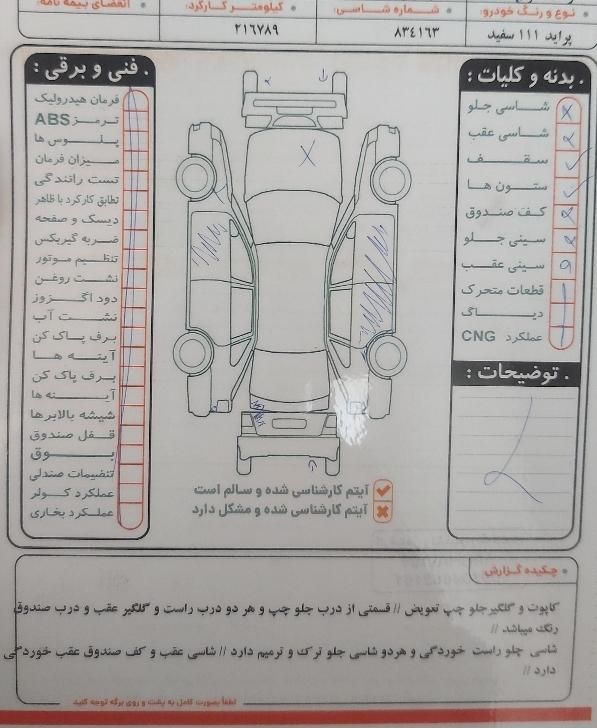 • نوع و رنگ خودرو:
• شماره شاسی:
• کیلومتر کارکرد:
• امضای بیمه نامه:
پراید ۱۱۱ سفید
۸۳٤۱۶۳
۲۱۶۷۸۹
. بدنه و کلیات :
شاسی جلو
شاسی عقب
سقف
ستون ها
کف صندوق
سینی جلو
سینی عقب
قطعات متحرک
دیاگ
عملکرد CNG
. توضیحات :
. فنی و برقی :
فرمان هیدرولیک
ترمز ABS
پلوس ها
میزان فرمان
تست رانندگی
تطابق کارکرد با ظاهر
دیسک و صفحه
ضربه گیربکس
تنظیم موتور
نشت روغن
دود اگزوز
نشت آب
برف پاک کن
آینه ها
برف پاک کن
آینه ها
شیشه بالابرها
قفل صندوق
بوق
تنظیمات صندلی
عملکرد کولر
عملکرد بخاری
آیتم کارشناسی شده و سالم است
آیتم کارشناسی شده و مشکل دارد
• چکیده گزارش:
کاپوت و گلگیرجلو چپ تعویض // قسمتی از درب جلو چپ و هر دو درب راست و گلگیر عقب و درب صندوق
رنگ میباشد //
شاسی جلو راست خوردگی و هردو شاسی جلو ترک و ترمیم دارد // شاسی عقب و کف صندوق عقب خوردگی
دارد //
لطفاً بصورت کامل به پشت و روی برگه توجه کنید